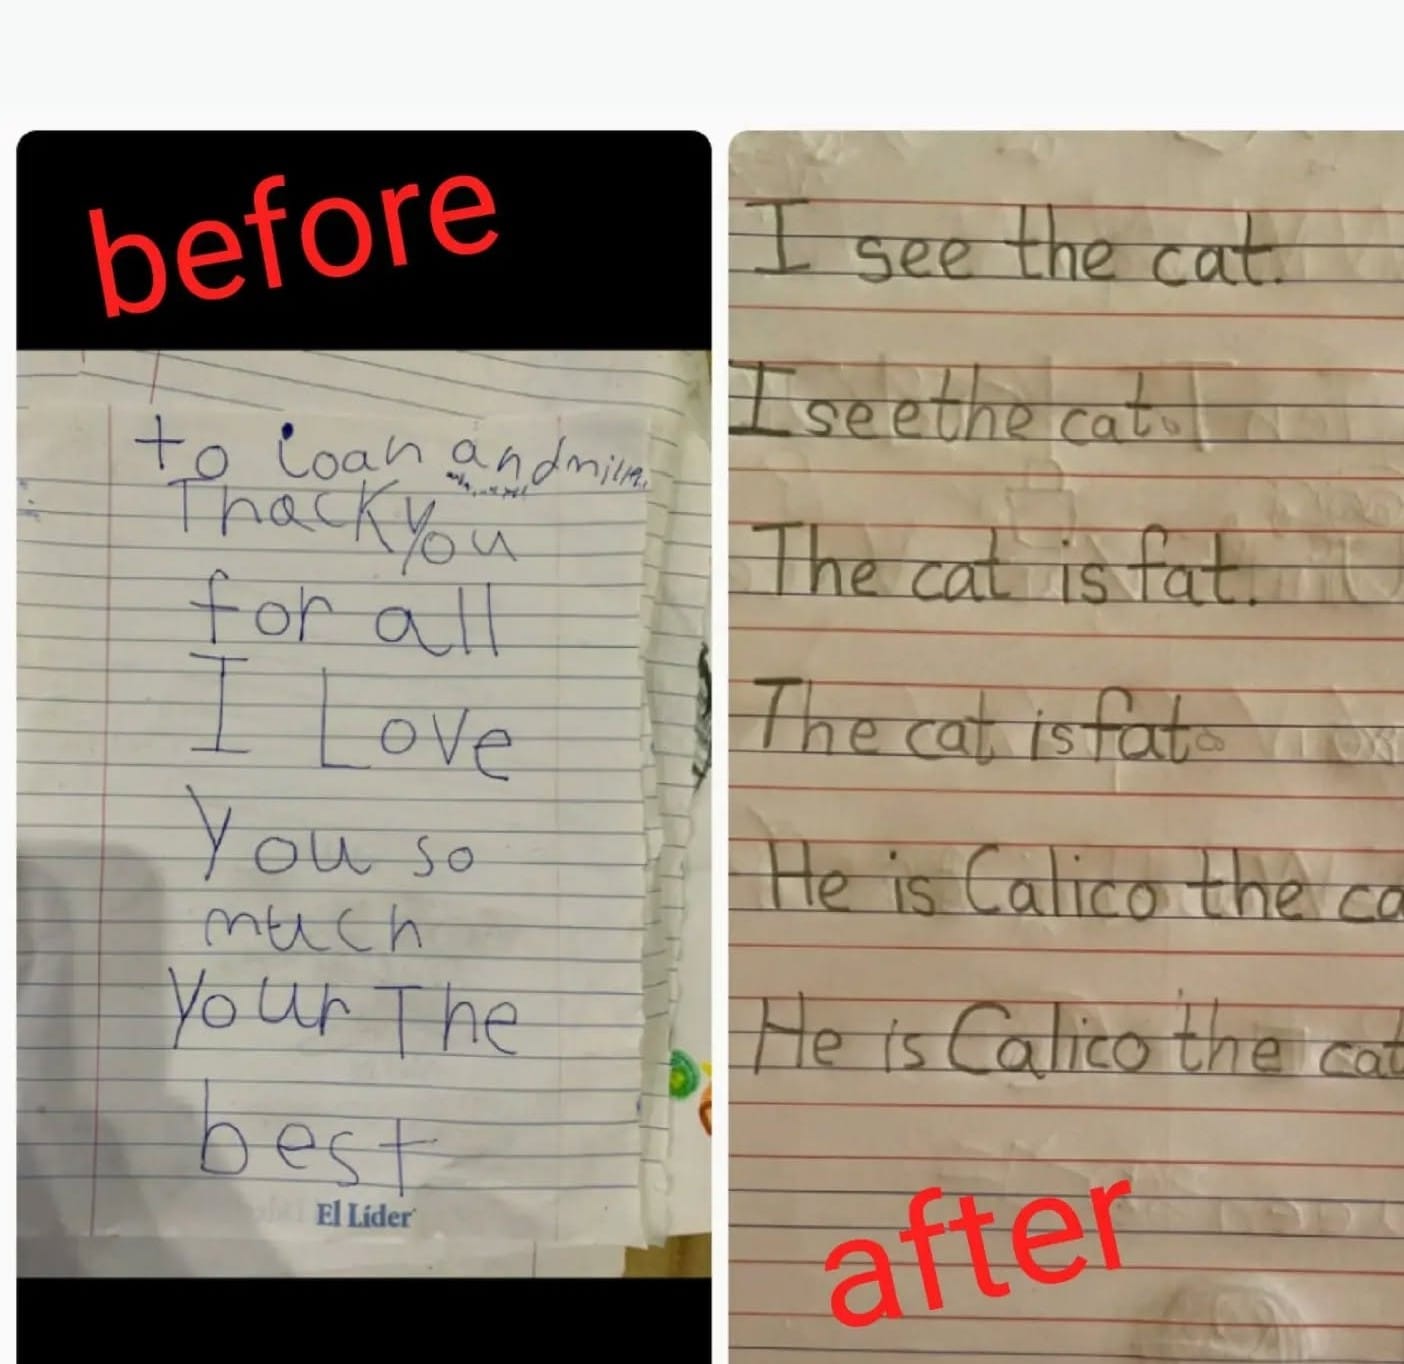 before
to ioan and
Thack you
for all
I Love
you so
much
your The
best
El Líder
I see the cat.
I see the cat.
The cat is fat.
The cat is fat.
He is Calico the ca
He is Calico the cat
after